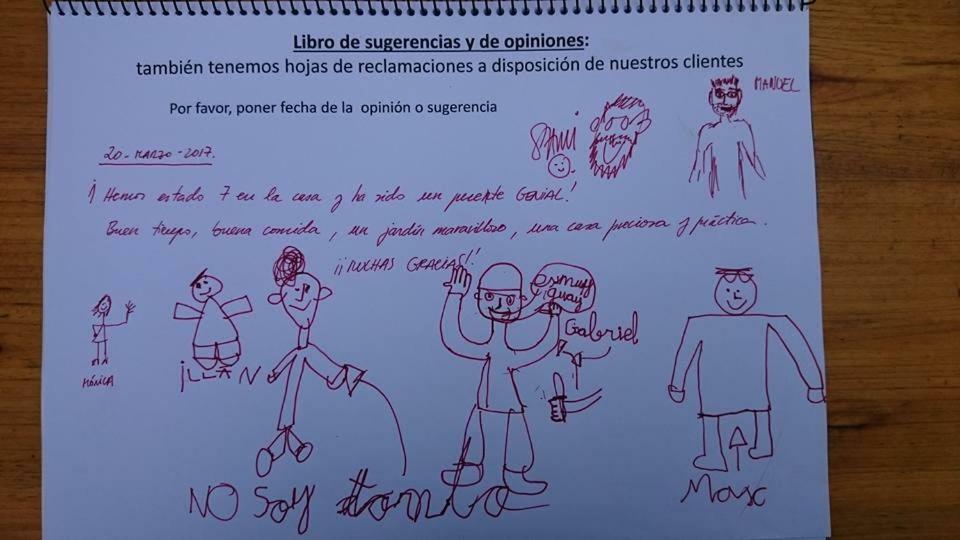 Libro de sugerencias y de opiniones:
también tenemos hojas de reclamaciones a disposición de nuestros clientes
Por favor, poner fecha de la opinión o sugerencia
MANUEL
20-MARZO-2017.
¡Hemos estado 7 en la casa y ha sido un puente GENIAL!
Buen tiempo, buena comida, un jardín maravilloso, una casa preciosa y práctica.
¡¡MUCHAS GRACIAS!!
es muy
guay
Gabriel
MÓNICA
ILLÁN
NO SOY tonto